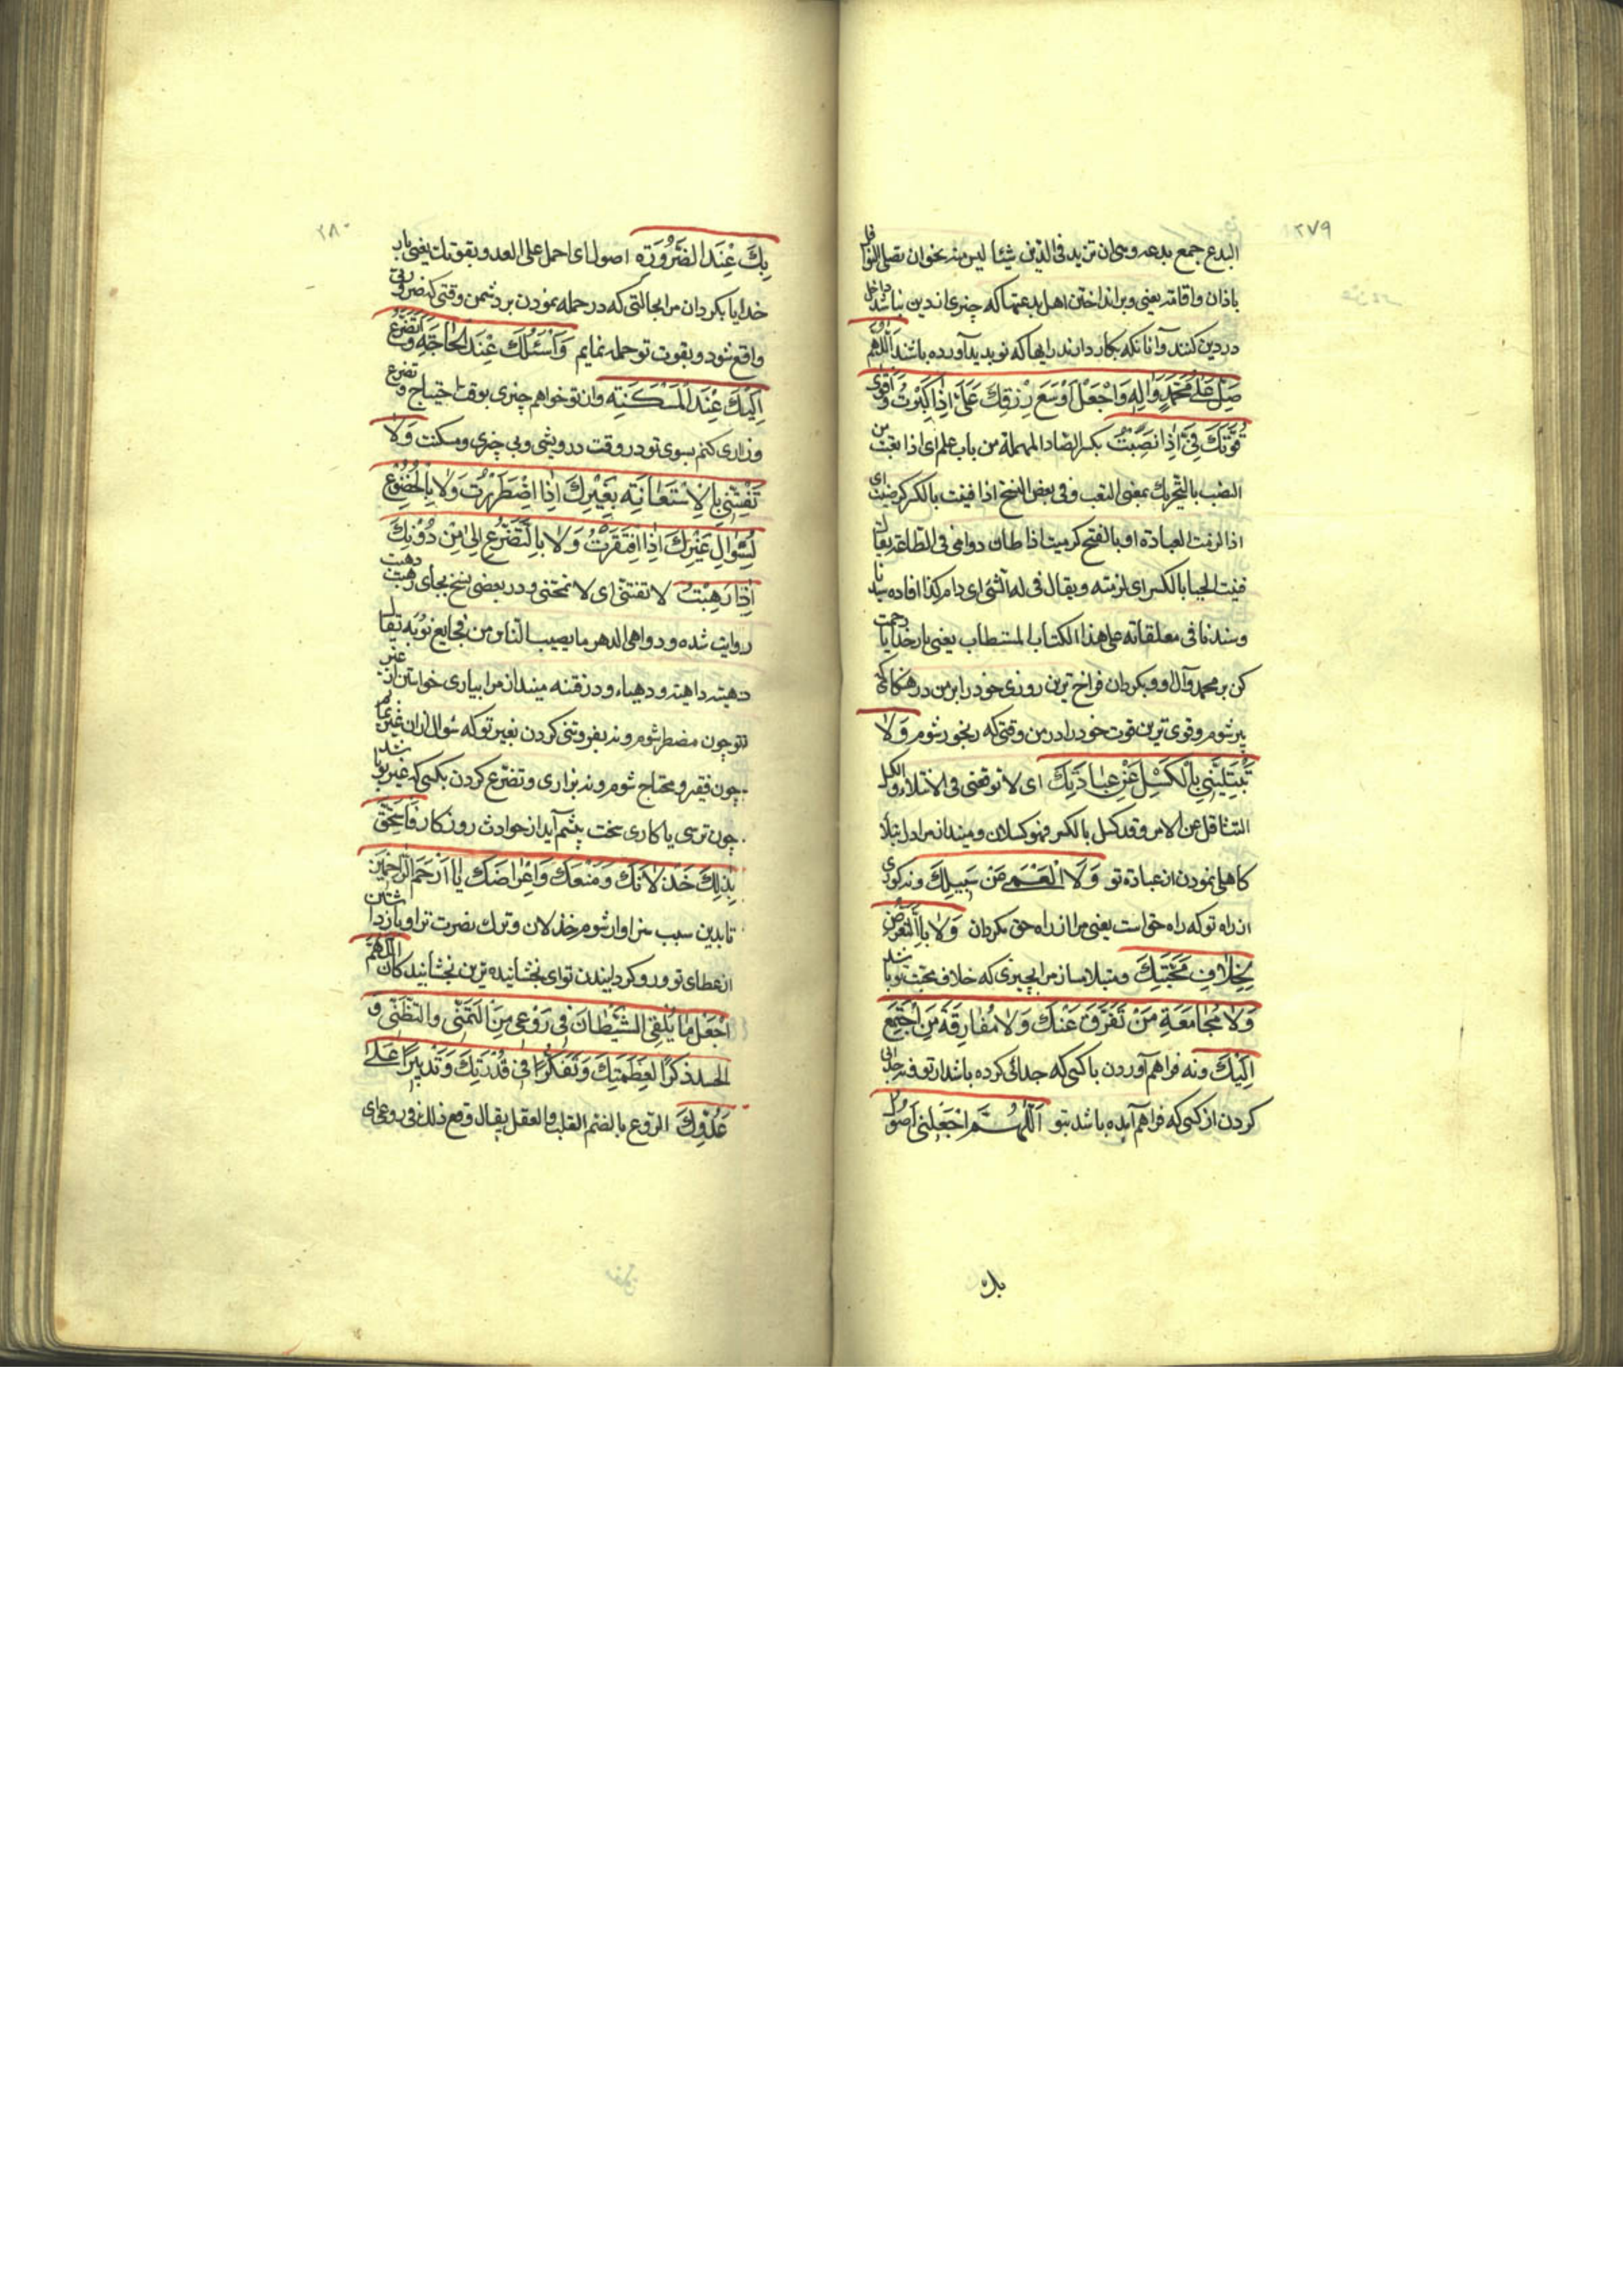 ٢٧٩
البدع جمع بدعه وهی ان تزید فی الدین شیئا لیس منه نحو ان تصلی النوافل
باذان واقامة یعنی وبرانداختن اهل بدعتها که چیزی از دین نباشد داخل
در دین کنند وآنانکه بکار دارند رایها که نو پدید آورده باشند اَللّٰهُمَّ
صَلِّ عَلٰی مُحَمَّدٍ وَاٰلِهِ وَاجْعَلْ اَوْسَعَ رِزْقِكَ عَلَیَّ اِذَا كَبُرْتُ وَاَقْوٰی
قُوَّتِكَ فِیَّ اِذَا نَصِبْتُ بکسر الصاد المهملة من باب علم ای اذا تعبت من
النصب بالتحریك بمعنی التعب وفی بعض النسخ اذا فنیت بالکسر کرضیت ای
اذا لزمت العبادة او بالفتح کرمیت اذا طال دوامی فی الطاعة یقال
فنیت الحیا بالکسر ای لزمته ویقال فنی له الشئ ای دام کذا افاده سیدنا
وسندنا فی معلقاته علی هذا الکتاب المستطاب یعنی بار خدایا رحمت
کن بر محمد وآل او وبکردان فراخ ترین روزی خود را بر من در هنکامی که
پیر شوم وقوی ترین قوت خود را در من وقتی که رنجور شوم وَلَا
تَبْتَلِیَنِّی بِالْكَسَلِ عَنْ عِبَادَتِكَ ای لا توقعنی فی الابتلاء والکسل
التثاقل عن الامر وقد کسل بالکسر فهو کسلان ومینداز مرا در ابتلا
کاهلی نمودن از عبادة تو وَلَا الْعَمٰی عَنْ سَبِیلِكَ ونه کوری
از راه تو که راه حق است یعنی مرا از راه حق مکردان وَلَا بِالتَّعَرُّضِ
لِخِلَافِ مَحَبَّتِكَ ومبتلا مساز مرا بچیزی که خلاف محبت تو باشد
وَلَا مُجَامَعَةِ مَنْ تَفَرَّقَ عَنْكَ وَلَا مُفَارَقَةِ مَنِ اجْتَمَعَ
اِلَیْكَ ونه فراهم آوردن با کسی که جدائی کرده باشد از تو ونه جدائی
کردن از کسی که فراهم آمده باشد بتو اَللّٰهُمَّ اجْعَلْنِی اَصُولُ
بك
٢٨٠
بِكَ عِنْدَ الضَّرُورَةِ اصول ای احمل علی العدو بقوتك یعنی بار
خدایا بکردان مرا بحالتی که در حمله نمودن بر دشمن وقتی که ضرورتی
واقع شود بقوت تو حمله نمایم وَاَسْئَلُكَ عِنْدَ الْحَاجَةِ وَاَتَضَرَّعُ
اِلَیْكَ عِنْدَ الْمَسْكَنَةِ وازتو خواهم چیزی بوقت احتیاج وتضرع
وزاری کنم بسوی تو در وقت درویشی وبی چیزی ومسکنت وَلَا
تَفْتِنِّی بِالْاِسْتِعَانَةِ بِغَیْرِكَ اِذَا اضْطُرِرْتُ وَلَا بِالْخُضُوعِ
لِسُؤَالِ غَیْرِكَ اِذَا افْتَقَرْتُ وَلَا بِالتَّضَرُّعِ اِلٰی مَنْ دُونَكَ
اِذَا رَهِبْتُ لا تفتنی ای لا تمتحنی ودر بعضی نسخ بجای رهبت دهیت
روایت شده ودواهی الدهر ما یصیب الناس من فجایع نوبه یقال
دهته داهیة ودهیاء ودر فتنه مینداز مرا بیاری خواستن از غیر
تو چون مضطر شوم ونه بفروتنی کردن بغیر تو که سؤال از ان غیر نمایم
چون فقیر ومحتاج شوم ونه بزاری وتضرع کردن بکسی که غیر تو باشد
چون ترسی یا کاری سخت پیشم آید از حوادث روزکار فَاَسْتَحِقَّ
بِذٰلِكَ خِذْلَانَكَ وَمَنْعَكَ وَاِعْرَاضَكَ یَا اَرْحَمَ الرَّاحِمِینَ
تا بدین سبب سزاوار شوم خذلان وترك نصرت ترا وبازداشتن
از عطای تو ورو کردانیدن تو ای بخشاینده ترین بخشایندکان اَللّٰهُمَّ
اجْعَلْ مَا یُلْقِی الشَّیْطَانُ فِی رَوْعِی مِنَ التَّمَنِّی وَالتَّظَنِّی وَ
الْحَسَدِ ذِكْرًا لِعَظَمَتِكَ وَتَفَكُّرًا فِی قُدْرَتِكَ وَتَدْبِیرًا عَلٰی
عَدُوِّكَ الروع بالضم القلب والعقل یقال وقع ذلك فی روعی ای